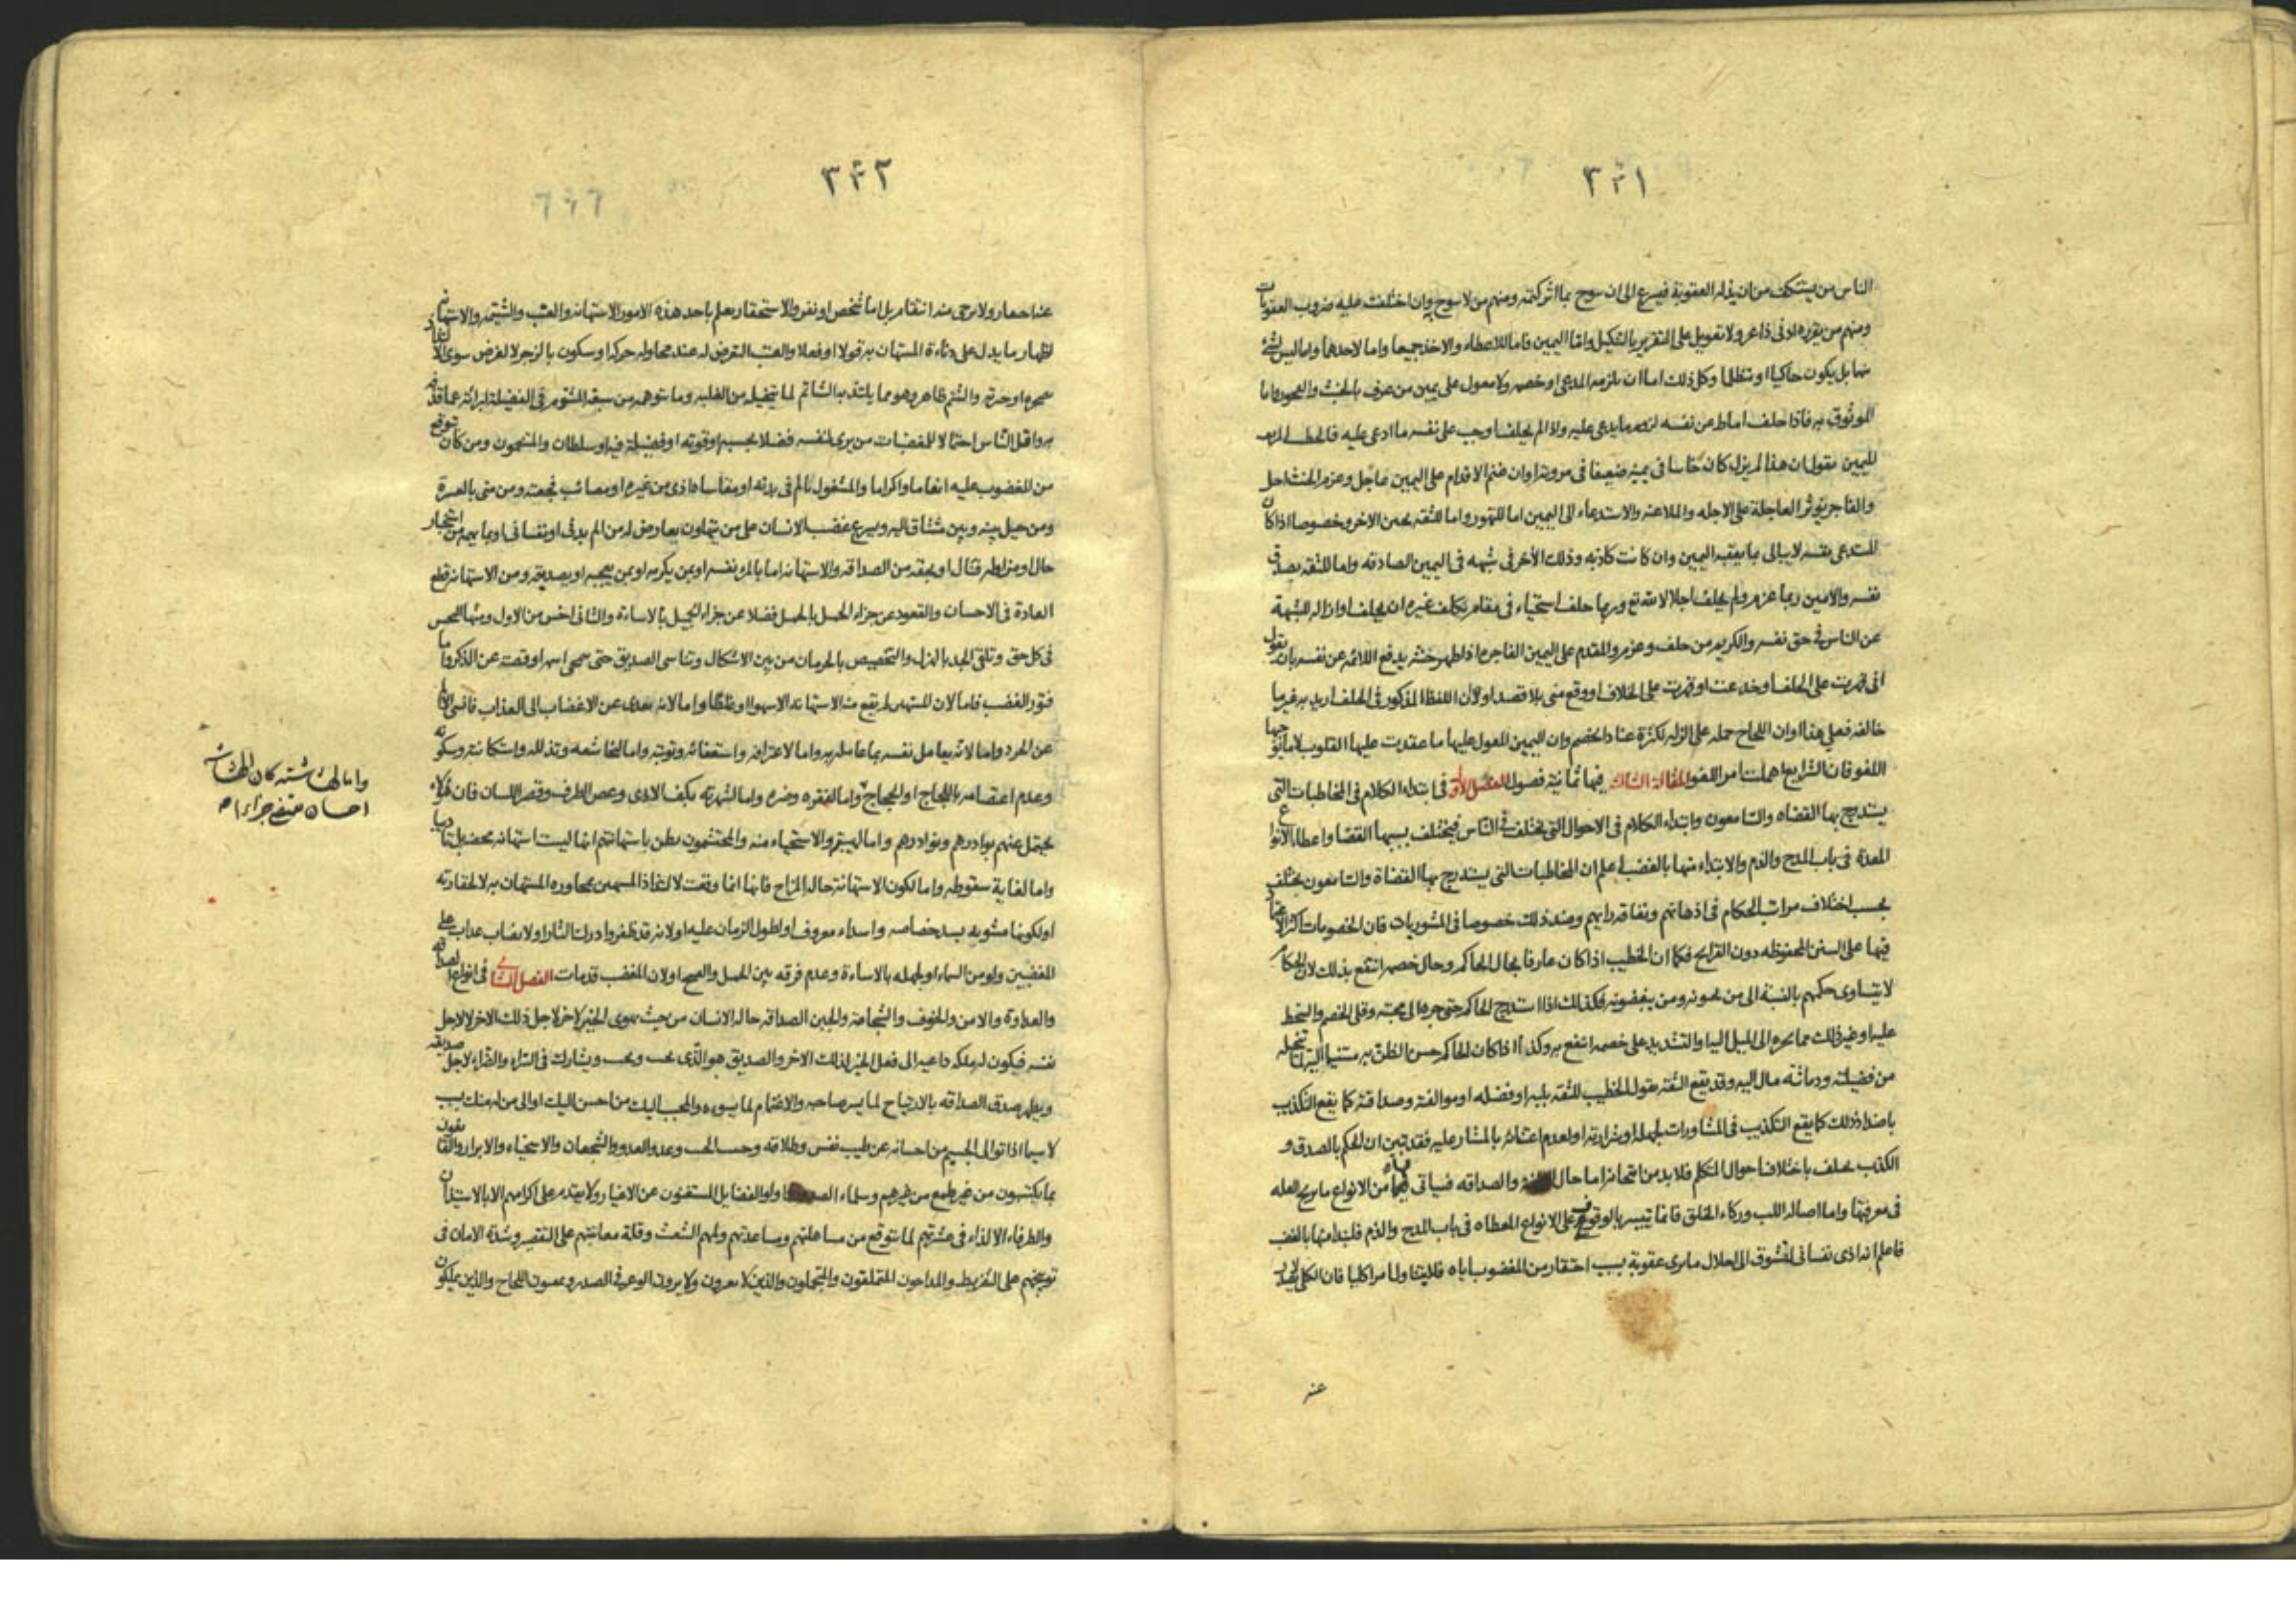 ٣٣١
الناس من يستنكف من ان يذله العقوبة فيسرع الى ان يبوح بما اثر كتمه ومنهم من لا يبوح وان اختلفت عليه ضروب العقوبات
ومنهم من يقرره ادنى ذاعر ولا تعويل على التقرير بالتنكيل واما اليمين فاما للاعطاء والاخذ جميعا واما لاحدهما واما ليس لشئ
منها بل يكون حاكيا او متظلما وكل ذلك اما ان يلزمه المدعى او خصمه ولا معول على يمين من عرف بالحنث والفجور واما
الموثوق به فاذا حلف اماط عن نفسه لزوم ما يدعى عليه واذا لم يحلف اوجب على نفسه ما ادعى عليه فالخطيب
لليمين يقول ان هذا لم يزل كان خاسا فى يمينه ضعيفا فى مروته او ان غنم الاقدام على اليمين عاجل وغرم الحنث اجل
والفاجر يؤثر العاجلة على الاجله والملاعنه والاستدعاء الى اليمين اما للتهور واما للثقه بجبن الاخر وخصوصا اذا كان
المدعى نفسه لا يبالى بما يعقبه اليمين وان كانت كاذبه وذلك الاخر فى شبهه فى اليمين الصادقه واما للثقه بصدق
نفسه والامين ربما غرم ولم يحلف اجلالا لله تع وربما حلف استحياء فى مقام تكلف غيره ان يحلف او ازاله للشبهة
عن الناس فى حق نفسه والكريم من حلف وغرم والمقدم على اليمين الفاجره اذا ظهر حنثه يدفع اللائمه عن نفسه بان يقول
انى قهرت على الحلف او خدعت او قهرت على الخلاف او وقع منى بلا قصد او لان اللفظ المذكور فى الحلف اريد به غير ما
خالفه فعلى هذا او ان اللجاج حمله على الزله لكثرة عناد الخصم وان اليمين المعول عليها ما عقدت عليها القلوب لا ما يوجبها
اللغو فان الشرايع اهملت امر اللغو المقالة الثالثه فيها ثمانية فصول الفصل الاول فى ابتداء الكلام فى المخاطبات التى
يستدرج بها القضاه والسامعون وابتداء الكلام فى الاحوال التى تختلف فى الناس فيختلف بسببها القضا واعطاء الانواع
المعدة فى باب المدح والذم والابتداء منها بالغضب اعلم ان المخاطبات التى يستدرج بها القضاة والسامعون يختلف
بحسب اختلاف مراتب الحكام فى اذهانهم ونفاقه رايهم وضد ذلك خصوصا فى المشوريات فان الخصومات اكثر الاعتماد
فيها على السنن المحفوظه دون القرايح فكما ان الخطيب اذا كان عارفا بحال الحاكم وحال خصمه انتفع بذلك لان الحكام
لا يتساوى حكمهم بالنسبة الى من يحبونه ومن يبغضونه فكذلك اذا استدرج الحاكم حتى جره الى محبته وقلى الخصم والسخط
عليه او غير ذلك مما يجره الى الميل اليه او التشديد على خصمه انتفع به وكذا اذا كان الحاكم حسن الظن به مستنيما اليه لما تخيله
من فضيلته ودماثه مال اليه وقد يقع الثقه بقول الخطيب للثقه بلبه او فضله او موالفته وصداقته كما يقع التكذيب
باضداد ذلك كما يقع التكذيب فى المشاورات لجهله او شرارته او لعدم اعتنائه بالمشار عليه فقد تبين ان الحكم بالصدق و
الكذب يختلف باختلاف احوال المتكلم فلا بد من امتحانه اما حال والصداقه فسياتى من الانواع ما يريح العله
فى معرفتها واما اصاله اللب وزكاء الخلق فانما تيسر بالوقوف على الانواع المعطاه فى باب المدح والذم فلنبدا منها بالغضب
فاعلم انه اذى نفسانى لتشوق الى احلال ما يرى عقوبة بسبب احتقار من المغضوب اياه فلا يتناول امرا كليا فان الكلى
عنه
٣٣٢
٦٠٦
عنه احتقار ولا يرجى منه انتقام بل اما شخص او نفر والاستحقار يعلم باحد هذه الامور الاستهانه والعنت والشتيمه والاستهانه
اظهار ما يدل على دناءة المستهان به قولا او فعلا والعنت التعرض له عند محاوله حركه او سكون بالزجر لا لغرض سوى
والشتم ظاهر وهو مما يلتذ به الشاتم لما يتخيله من الغلبه وما يتوهمه من سبقه المشتوم فى الفضيلة لبرائه عما قذفه
به واقل الناس احتمالا للغضبات من يرى لنفسه فضلا بحسبه او قوته او فضيلة فيه او سلطان والمنعمون ومن كان توقع
من المغضوب عليه انعاما واكراما والمشغول بالم فى بدنه او مقاساه اذى من غيره او مصائب فجعته ومن منى بالعسرة
ومن حيل بينه وبين مشتاق اليه ويسرع غضب الانسان على من يتهاون بعارض له من الم بدنى او نفسانى او بما يهمه من استخبار
حال او مزاوله قتال او بعقد من الصداقه والاستهانه اما بالمرء نفسه او بمن يكرمه او بمن يعجبه او بصديقه ومن الاستهانه قطع
العادة فى الاحسان والقعود عن جزاء الجميل بالجميل فضلا عن جزاء الجميل بالاساءة والثانى اخس من الاول
فى كل حق وتلقى الجد بالهزل والتخصيص بالحرمان من بين الاشكال وتناسى الصديق حتى يمحى اسمه او قصته عن الذكر واما
فتور الغضب فاما لان المستهين لم يقع منه الاستهانه الا سهوا او غلطا واما لانه تعدى عن الاغضاب الى العذاب
عن الحرد واما لانه يعامل نفسه بما عامله به واما لاعترافه واستعفائه وتوبته واما لتخاشعه وتذلله واستكانته وسكوته
وعدم اعتصامه باللجاج او الحجاج واما لفقره وضره واما لشهرته بكف الاذى وغض الطرف وقصر اللسان فان هؤلاء
يحتمل عنهم بوادرهم ونوادرهم واما لهيبته والاستحياء منه والمحتشمون يظن باستهانتهم انها ليست استهانه محضه بل تاديبا
واما لغاية سقوطه واما لكون الاستهانة حال المزاح فانها انما وقعت لا لمحاوره المستهان به لا لحقارته
او لكونها مشوبه بسد خصاصه واسداء معروف او لطول الزمان عليه او لانه قد ظفر وادرك الثار او لانصاب عذاب على
المغضبين ولو من السماء او لجهله بالاساءة وعدم فرقه بين الجميل والقبيح او لان المغضب قد مات الفصل الثانى فى انواع الصداقه
والعداوة والامن والخوف والشجاعه والجبن الصداقه حاله الانسان من حيث يهوى الخير لاخر لاجل ذلك الاخر لا لاجل
نفسه فيكون له ملكه داعيه الى فعل الخير لذلك الاخر والصديق هو الذى يحب ويحب ويشارك فى السراء والضراء لاجل صديقه
ويظهر صدق الصداقه بالارتياح لما يسر صاحبه والاغتمام لما يسوءه والمحبب اليك من احسن اليك او الى من له منك سبب
لا سيما اذا توالى الجسيم من احسانه عن طيب نفس وطلاقه وحب المحب وعدو العدو والشجعان والاسخياء والابرار والقانعون
بما يكتسبون من غير طمع من غيرهم وسلماء الصدور واولوا الفضايل المستغنون عن الاغيار ولا يقدم على اكرامهم الا بالاستيذان
والظرفاء الالذاء فى عشرتهم لما يتوقع من مساهلتهم ومساعدتهم ولمهم الشعث وقلة معاتبتهم على التقصير وشدة الامان فى
توبيخهم على التفريط والمداحون المتملقون والمتجملون والذين لا يعيرون ولا يرون الوغر فى الصدر ويمسون اللجاج والذين يملكون
احسان جزاء